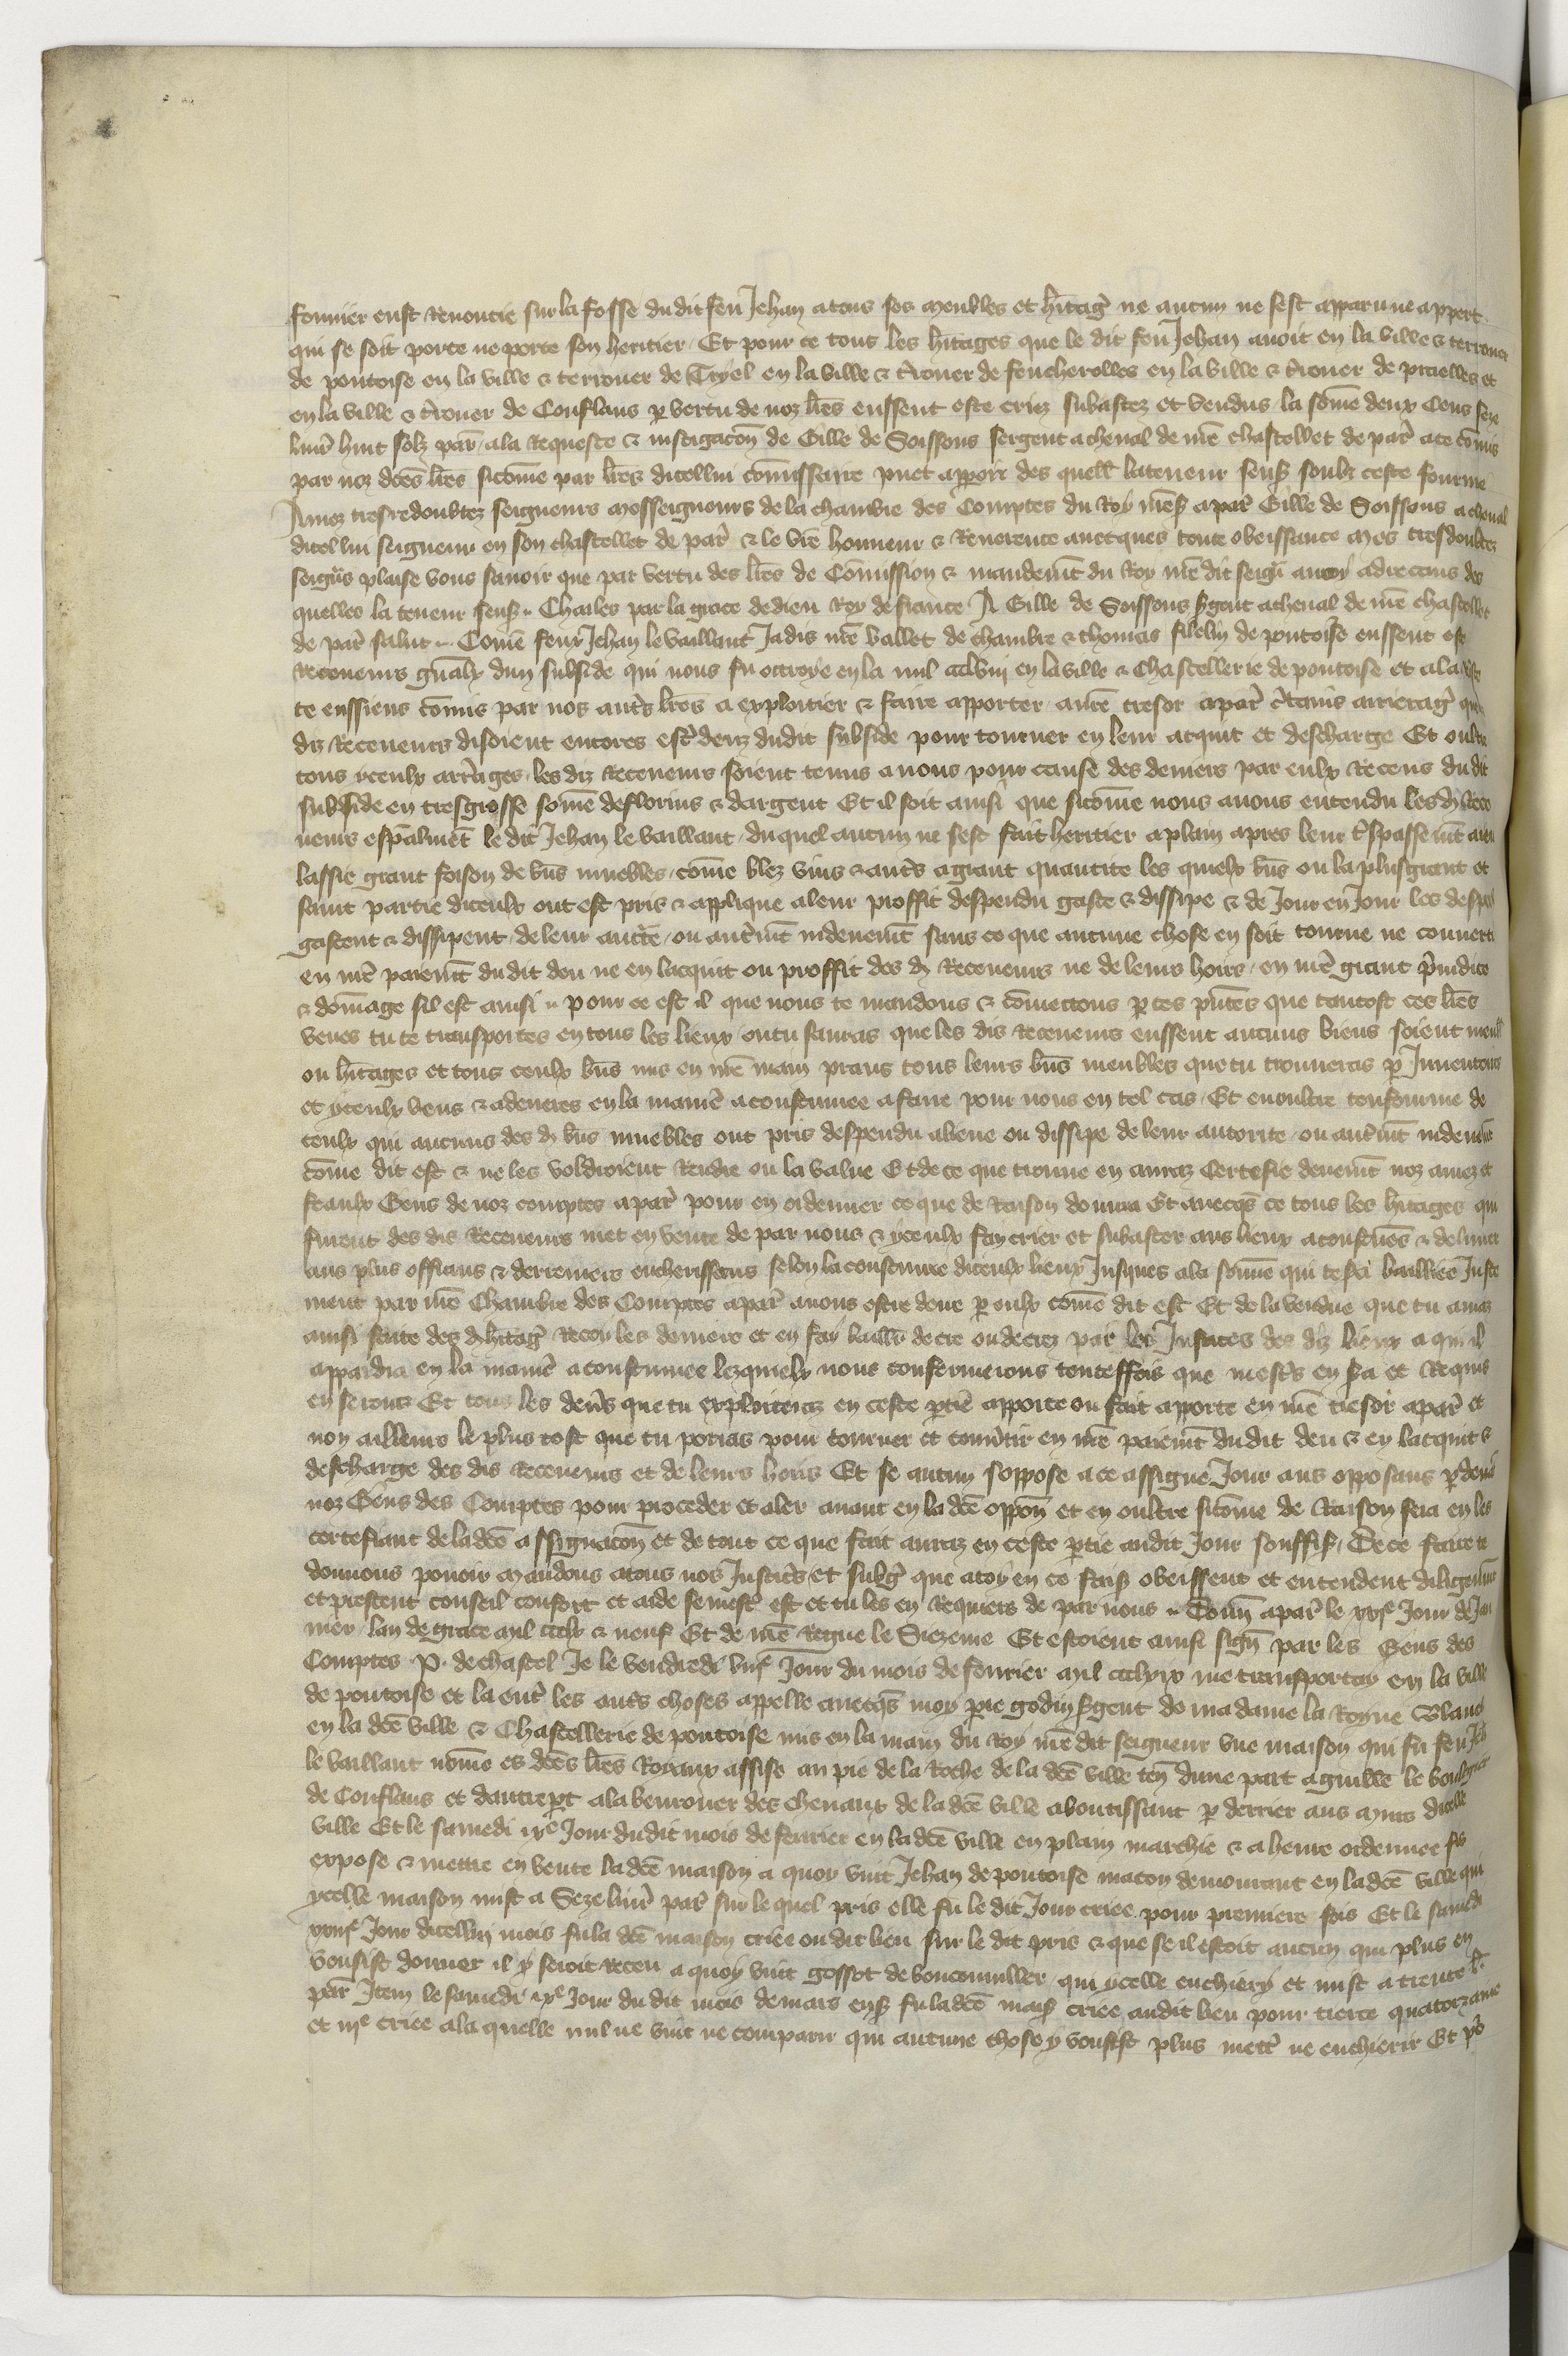 fournier eust Renoncie sur la fosse du dit feu Jehan a tous ses meubles et hitag ne aucun ne sest apparu ne appert
qui se soit porte ne porte son heritier Et pour ce tous les hitages que le dit feu Jehan auoit en la ville & terrouer
de pontoise en la ville & terrouer de Tryel en la ville & trouer de feucherolles en la ville & trouer de praelles et
en la ville & trouer de Conflans p vertu de noz lres eussent este criez subastez et vendus la some deux Cens seze
liur huit solz par a la Requeste & instigacon de Gille de Soissons sergent a cheual de nre chastellet de par a ce comis
par noz dces lres sicome par lres dicellui comissaire puet apparoir des quell la teneur sensuit soubz ceste fourme
A mes tresredoubtez seigneurs mosseigneurs de la chambre des Comptes du Roy nres a par Gille de Soissons a cheual
dicellui seigneur en son chastellet de par & le vre honneur & Reuerence auecques toute obeissance mes tresdoubtez
seigurs plaise vous sauoir que par vertu des lres de Comission & mandemt du Roy nre dit seigr a moy adrecens des
quelles la teneur sensuit Charles par la grace de dieu Roy de france A Gille de Soissons sgent a cheual de nre chastellet
de par salut Come feux Jehan le vaillant Jadis nre vallet de chambre & thomas filelin de pontoise eussent este
Receueurs gnaulx dun subside qui nous fu octroye en lan mil ccclviii en la ville & Chastellerie de pontoise et a la
te eussiens comis par nos autrs lres a exploitier & faire apporter a nre tresor a par ctains arrierag que
diz Receueurs disoient encores estre deuz du dit subside pour tourner en leur acquit et descharge Et oultre
tous yceulx arrages les diz Receueurs soient tenus a nous pour cause des deniers par eulx Receus du dit
subside en tresgrosse some de florins & dargent Et il soit ainsi que sicome nous auons entendu les d Rece
ueurs espalmet le dit Jehan le vaillant du quel aucun ne sest fait heritier a plain apres leur tspassemt aient
lassie grant foison de bns muebles come blez vins & autrs a grant quantite les quielx bns ou la plus grant et
saint partie diceulx ont este pris & applique a leur proffit despendu gaste & dissipe & de Jour en Jour les despendent
gastent & dissipent de leur aucte ou autrmt indeuemt sans ce que aucune chose en soit tourne ne conuerti
en nre paiemt du dit deu ne en lacquit ou proffit des d Receueurs ne de leurs hoirs en nre grant priudice
& domage sil est ainsi pour ce est il que nous te mandons & comectons p ces pntes que tantost ces lres
veues tu te transportes en tous les lieux ou tu sauras que les dis Receueurs eussent aucuns biens soient meubl
ou hitages et tous ceulx bns mis en nre main prans tous leurs bns meubles que tu trouueras p Inuentoire
et yceulx vens & adeneres en la manie acoustumee a faire pour nous en tel cas Et en oultre te informe de
ceulx qui aucuns des d bns muebles ont pris despendu aliene ou dissipe de leur autorite ou autrmt indeuemt
come dit est & ne les voldroient Rendre ou la value Et de ce que trouue en auraz Certefie deuemt noz amez et
feaulx Gens de noz comptes a par pour en ordenner ce que de Raison donrra Et auecqs ce tous les hitages qui
furent des dis Receueurs met en vente de par nous & yceulx fay crier et subaster aus lieux acoustues & deliurer
aus plus offrans & derreniers encherisseurs selon la coustume diceulx lieux Jusques a la some qui te sa bailliee Juste
ment par nre Chambre des Comptes a par a nous estre deue p eulx come dit est Et de la vendue que tu auraz
ainsi faite des d hitag Recoy les deniers et en fay baill decre ou decrez par les Justices des diz lieux a qui il
appardra en la manie acoustumee lezquielx nous confermerons touteffois que mestrs en sa et Requis
en serons Et tous les denrs que tu exploiteraz en ceste ptie apporte ou fait apporte en nre tresor a par et
non ailleurs le plus tost que tu porras pour tourner et conutir en nre paiemt du dit deu & en lacquit &
descharge des dis Receueurs et de leurs hoirs Et se aucun soppose a ce assigne Jour aus opposans p deuant
noz Gens des Comptes pour proceder et aler auant en la dce oppon et en oultre sicome de Raison sera en les
certefiant de la dce assignacon et de tout ce que fait auraz en ceste ptie audit Jour souffis De ce faire te
donnons pouoir mandons a tous nos Justicrs et subg que a toy en ce fais obeissent et entendent diligenmt
et prestent conseil confort et aide se mestr est et tu les en Requiers de par nous Donn a par le xxse Jour de Jan
uier lan de grace mil ccclx & neuf Et de nre Regne le Siezeme Et estoient ainsi sign par les Gens des
Comptes P. de chastel Je le vendredi viije Jour du mois de feurier mil ccclxix me transportay en la ville
de pontoise et la entr les autrs choses appelle auecqs moy prre godin sgent de ma dame la Royne Blanche
en la dce ville & Chastellerie de pontoise mis en la main du Roy nre dit seigneur vne maison qui fu feu Jeh
le vaillant nome es dces lres Royaux assise au pie de la Roche de la dce ville ten dune part a guille le boulgier
de Conflans et dautrept a la beurouer des Cheuaux de la dce ville aboutissant p derrier aus murs dicelle
ville Et le samedi ixe Jour du dit mois de feurier en la dce ville en plain marchie & a heure ordennee fis
expose & mettre en vente la dce maison a quoy vint Jehan de pontoise macon demourant en la dce ville qui
ycelle maison mist a Seze liur par sur le quel pris elle fu le dit Jour criee pour premiere fois Et le samedi
xxiije Jour dicellui mois fu la dce maison criee ou dit lieu sur le dit pris & que se il estoit aucun qui plus en
vousist donner il y seroit Receu a quoy vint gossot de boucomuiller qui ycelle encheiry et mist a trente l
par Item le samedi ixe Jour du dit mois de mars ensuit fu la dce mais criee audit lieu pour tierce quatorzaine
et iije criee a la quelle nul ne vint ne comparu qui aucune chose y vousist plus mettr ne enchierir Et ps